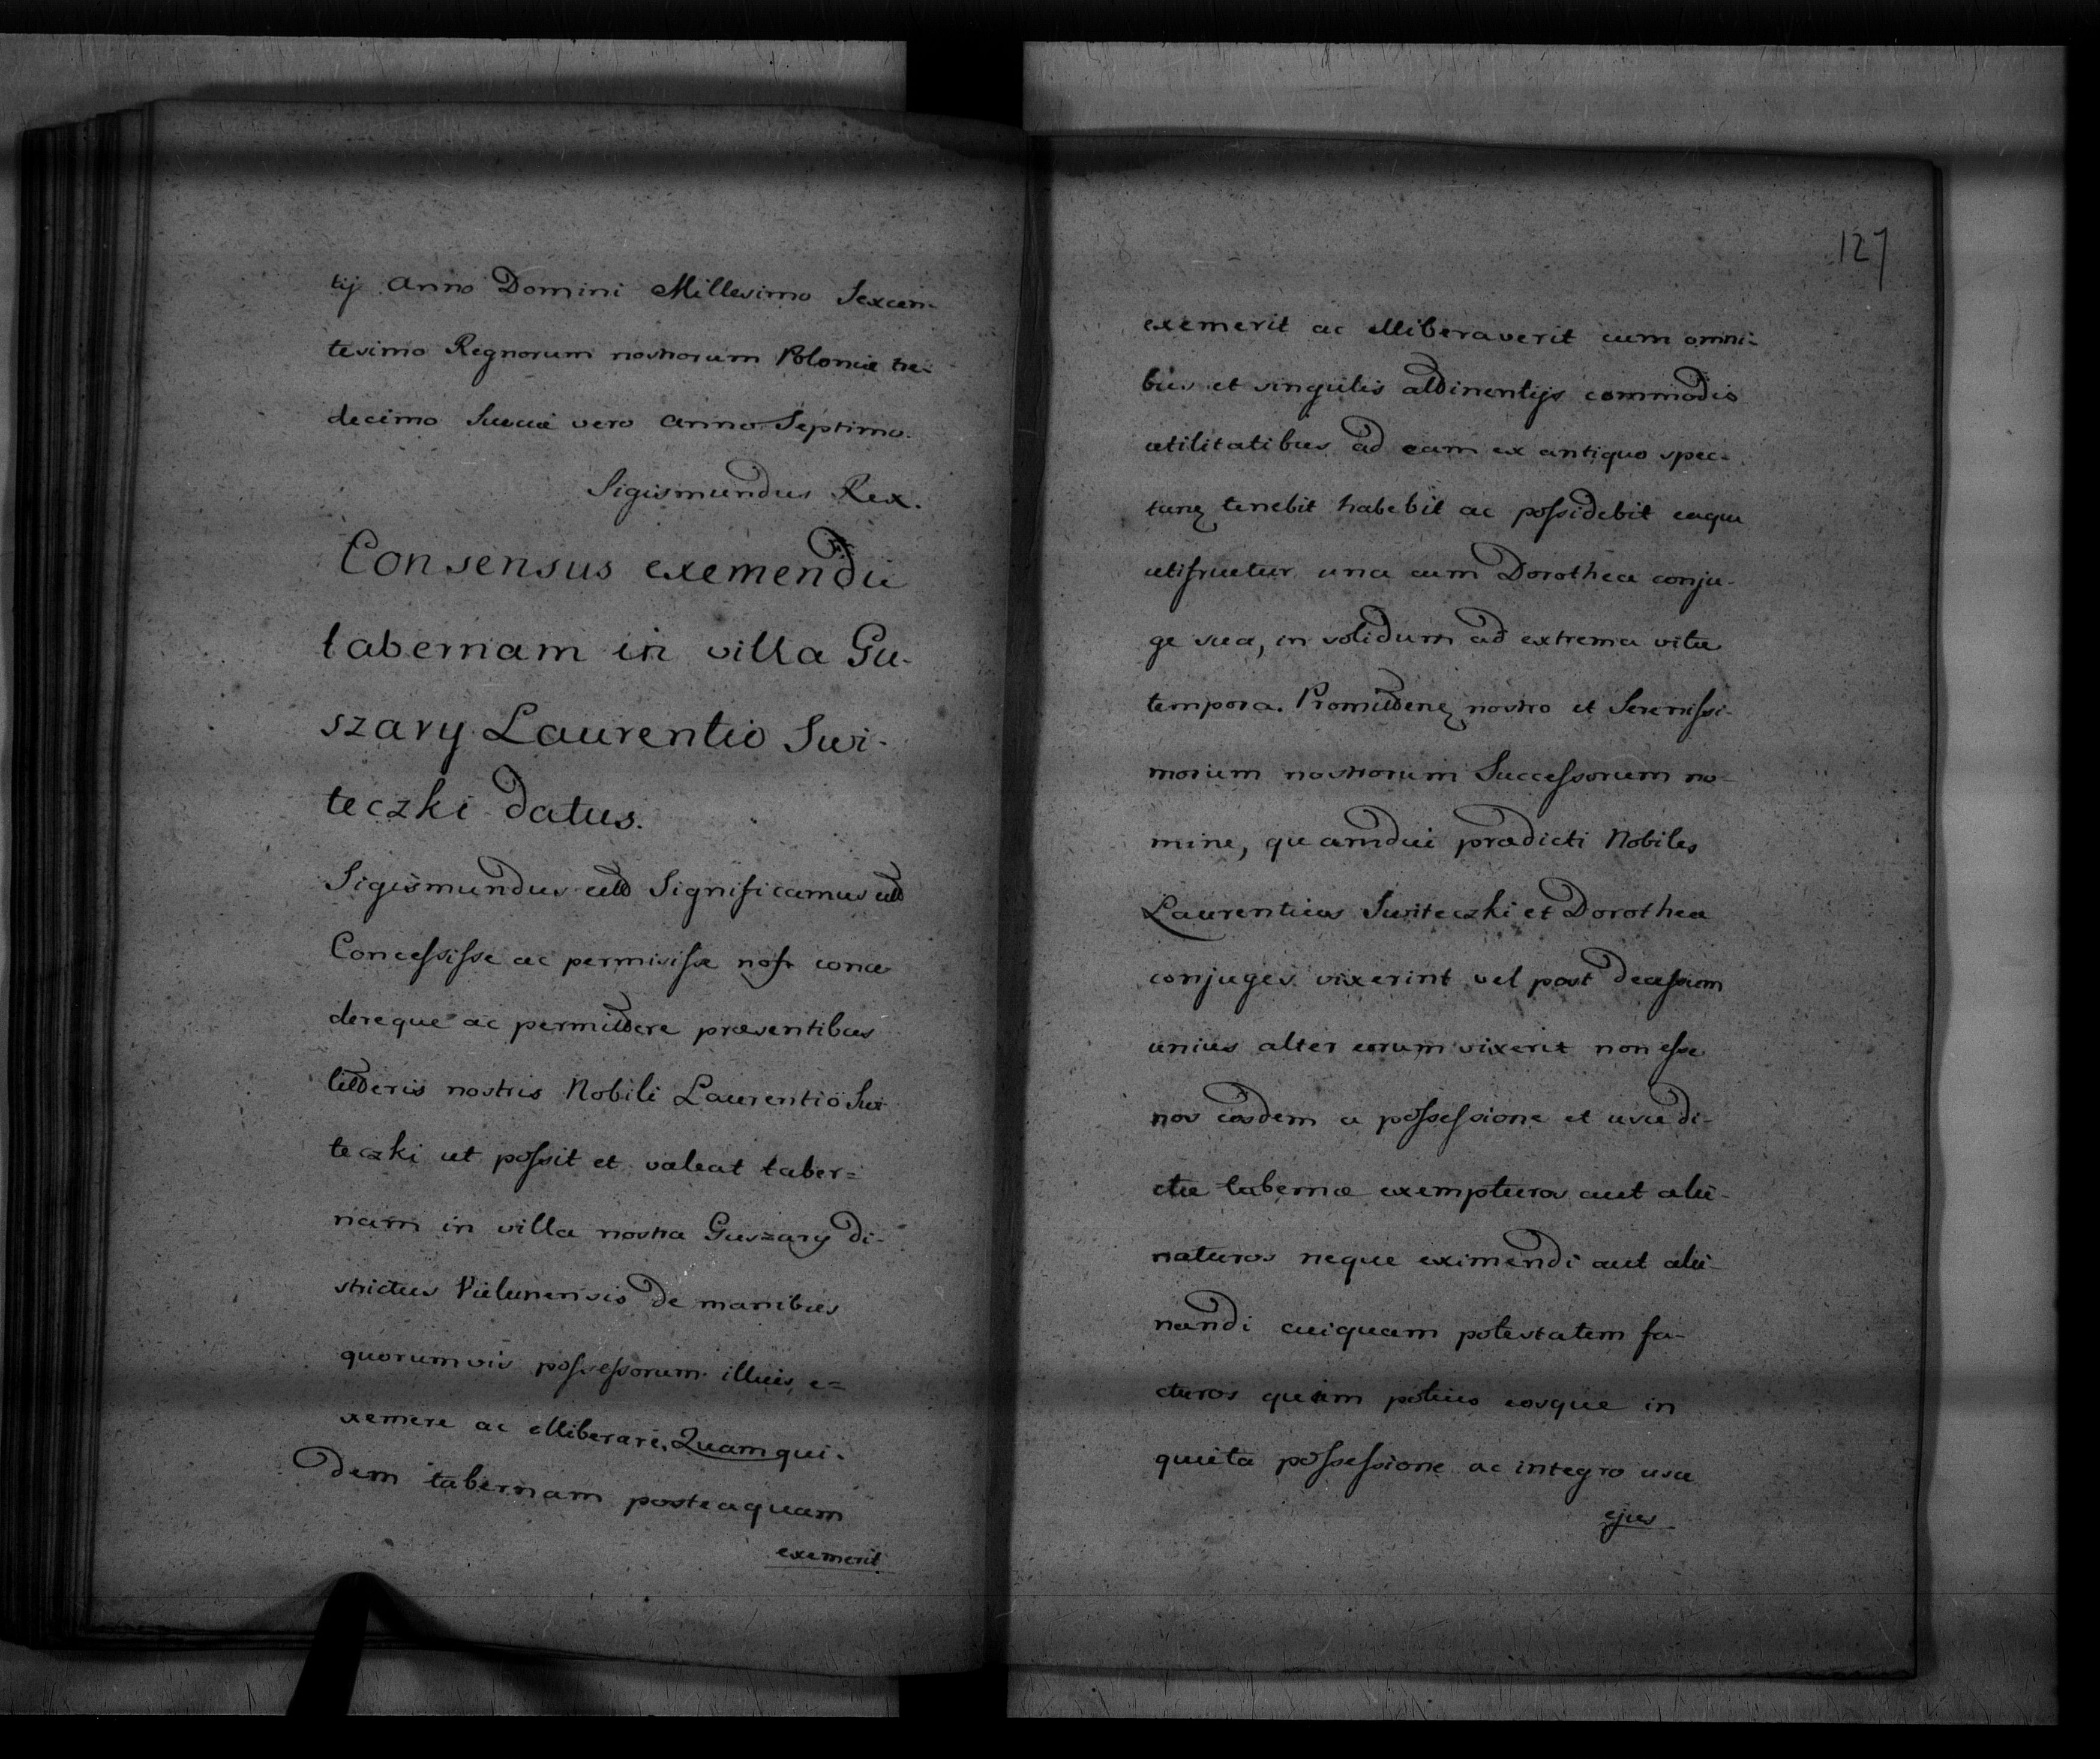 tij Anno Domini Millesimo Sexcen-
tesimo Regnorum nostrorum Poloniæ tre-
decimo Sueciæ vero anno Septimo.
Sigismundus Rex.
Consensus exemendii
tabernam in villa Gu-
szary Laurentio Swi-
teczki datus.
Sigismundus etc Significamus etc
Concessisse ac permisisse nos conce
dereque ac permittere præsentibus
litteris nostris Nobili Laurentio Swi
teczki ut possit et valeat taber=
nam in villa nostra Guszary di-
strictus Vielunensis de manibus
quorumvis possessorum illius e=
xemere ac elliberare. Quam qui-
dem tabernam posteaquam
exemerit
127
exemerit ac elliberaverit cum omni-
bus et singulis attinentijs commodis
utilitatibus ad eam ex antiquo spec-
tanq tenebit habebit ac possidebit eaque
utifruetur una cum Dorothea conju-
ge sua, in solidum ad extrema vitæ
tempora. Promittenq nostro et Serenissi-
morum nostrorum Successorum no-
mine, quamdui prædicti Nobiles
Laurentius Switeczki et Dorothea
conjuges vixerint vel post decessum
unius alter eorum vixerit non esse
nos eosdem a possessione et usu di-
ctæ tabernæ exempturos aut alie-
naturos neque eximendi aut alie-
nandi cuiquam potestatem fa-
cturos quam potius eosque in
quieta possessione ac integro usu
ejus